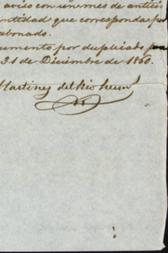 aviso con un mes de antici
ntidad que corresponda por
abonado.
umento por duplicado
21 de Diciembre de 1860.
Martinez del Rio herm^s